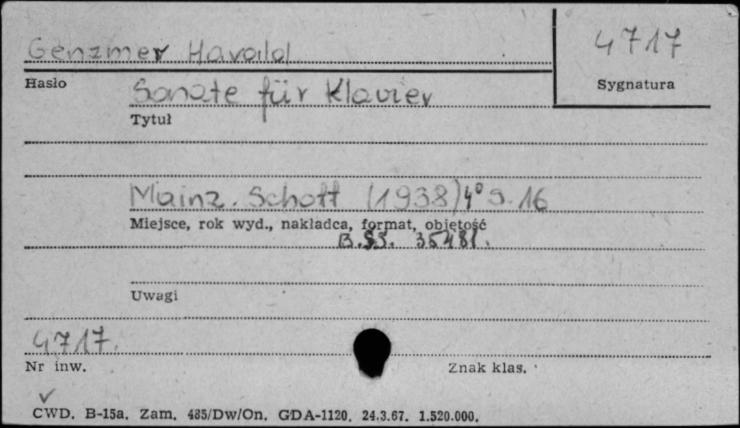 Genzmer Harald
4717
Hasło
Sygnatura
Sonate für Klavier
Tytuł
Mainz. Schott (1938) 4° s. 16
Miejsce, rok wyd., nakładca, format, objętość
B.SS. 35481.
Uwagi
4717.
Nr inw.
Znak klas.
CWD. B-15a. Zam. 485/Dw/On. GDA-1120. 24.3.67. 1.520.000.